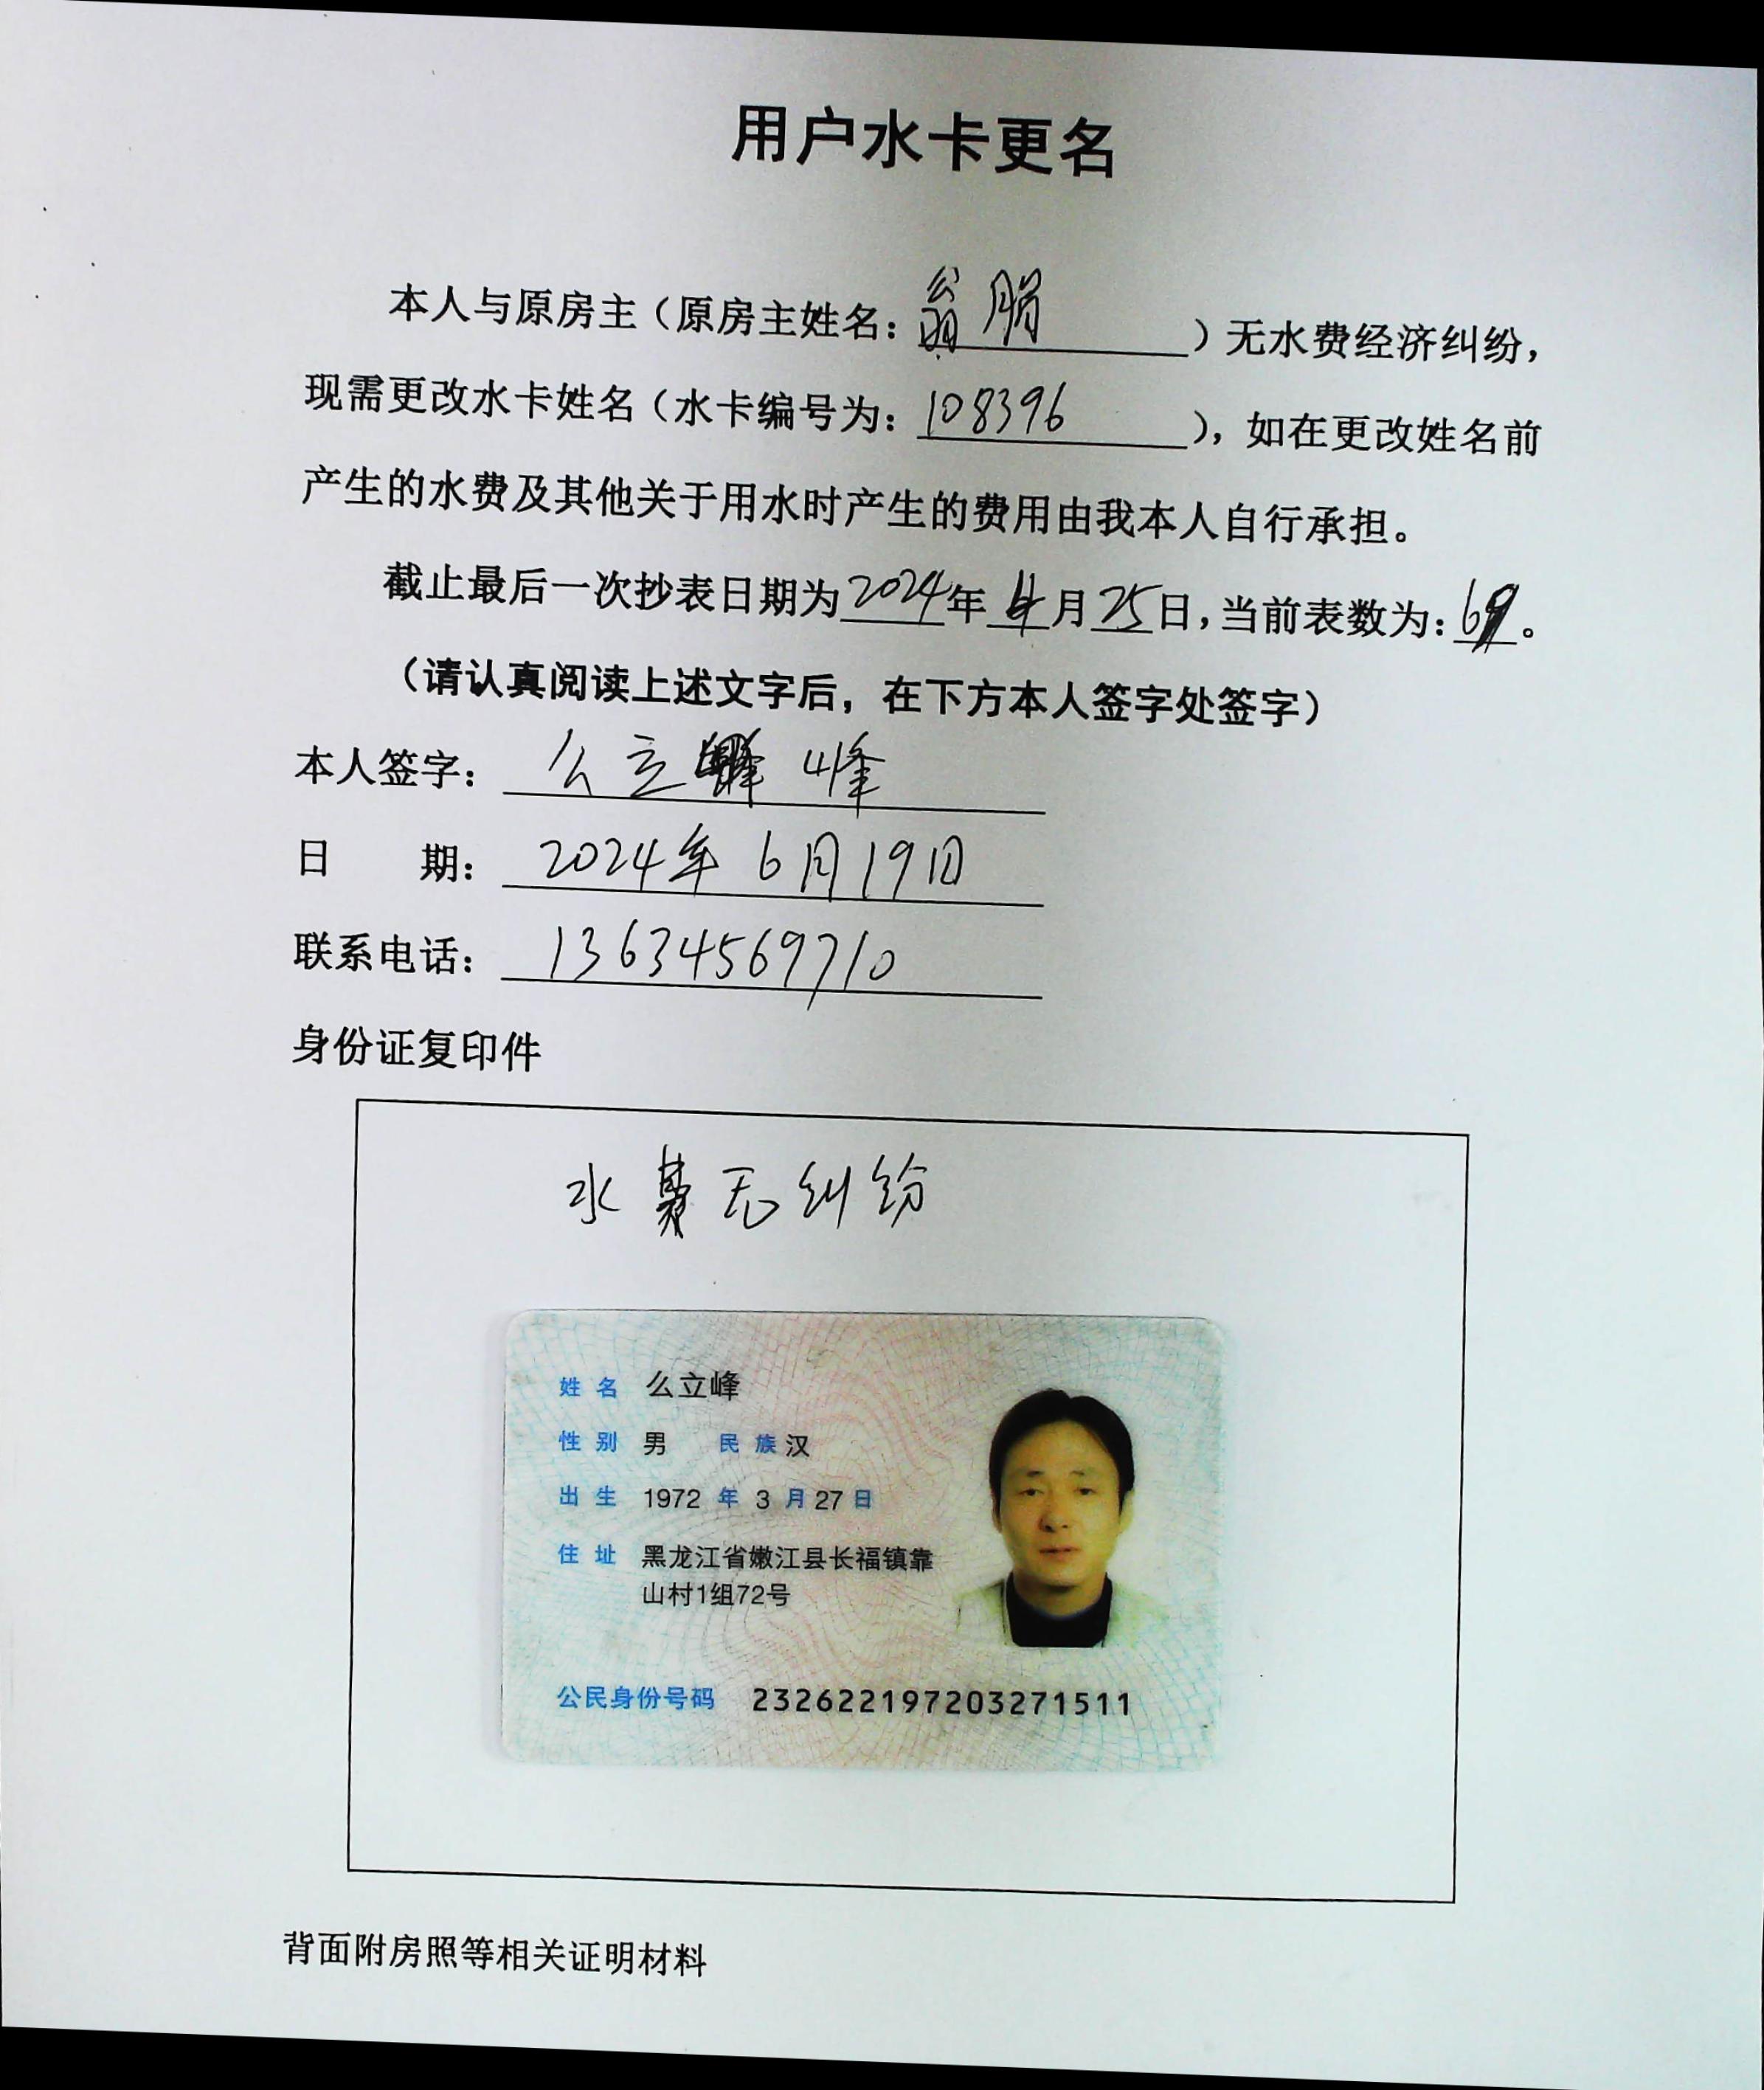 用户水卡更名
本人与原房主（原房主姓名：翁 鹃）无水费经济纠纷，
现需更改水卡姓名（水卡编号为：108396），如在更改姓名前
产生的水费及其他关于用水时产生的费用由我本人自行承担。
截止最后一次抄表日期为2024年 4月25日，当前表数为：69。
（请认真阅读上述文字后，在下方本人签字处签字）
本人签字： 么立 峰
日 期： 2024年 6月19日
联系电话： 13634569710
身份证复印件
水费无纠纷
姓名 么立峰
性别 男 民族 汉
出生 1972 年 3 月 27 日
住址 黑龙江省嫩江县长福镇靠
山村1组72号
公民身份号码 232622197203271511
背面附房照等相关证明材料